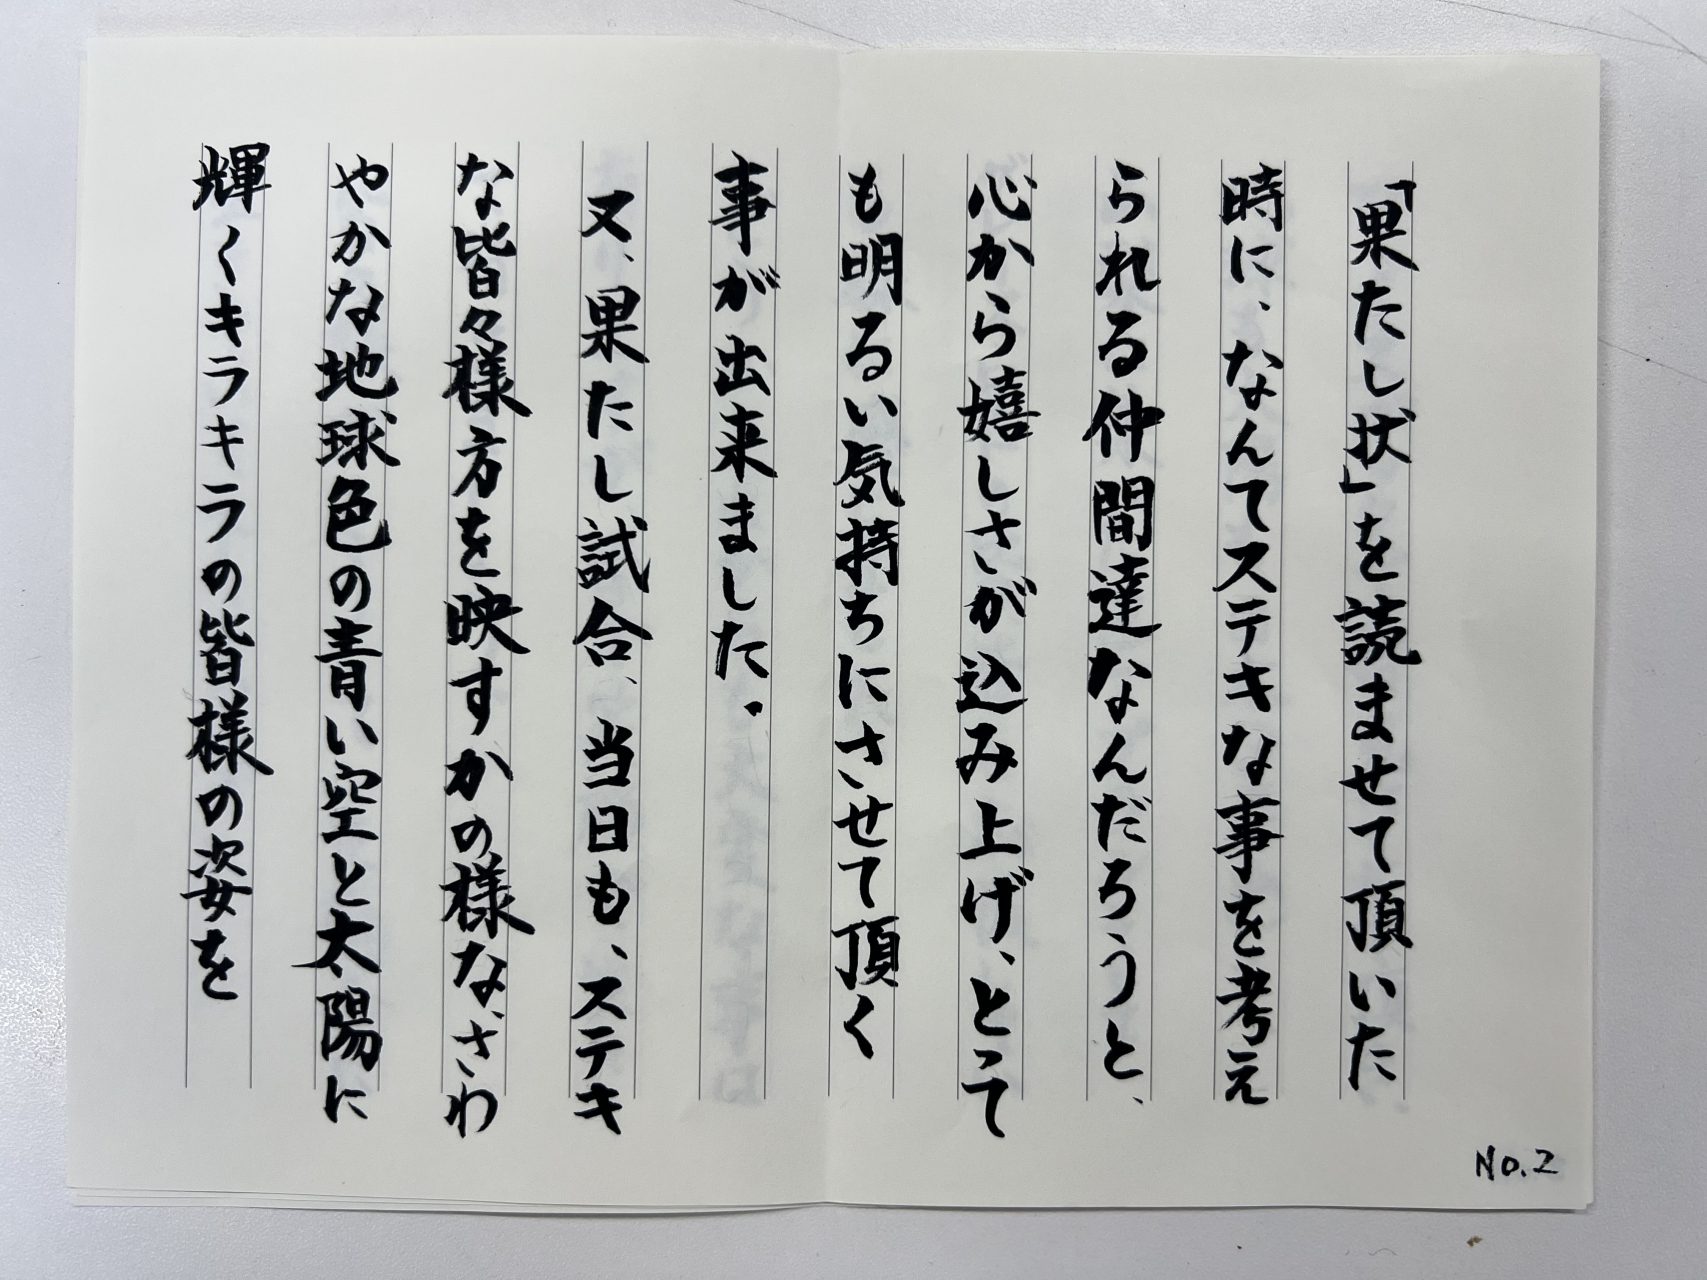 「果たし状」を読ませて頂いた
時に、なんてステキな事を考え
られる仲間達なんだろうと、
心から嬉しさが込み上げ、とって
も明るい気持ちにさせて頂く
事が出来ました。
又、果たし試合、当日も、ステキ
な皆々様方を映すかの様な、さわ
やかな地球色の青い空と太陽に
輝くキラキラの皆様の姿を
No.2